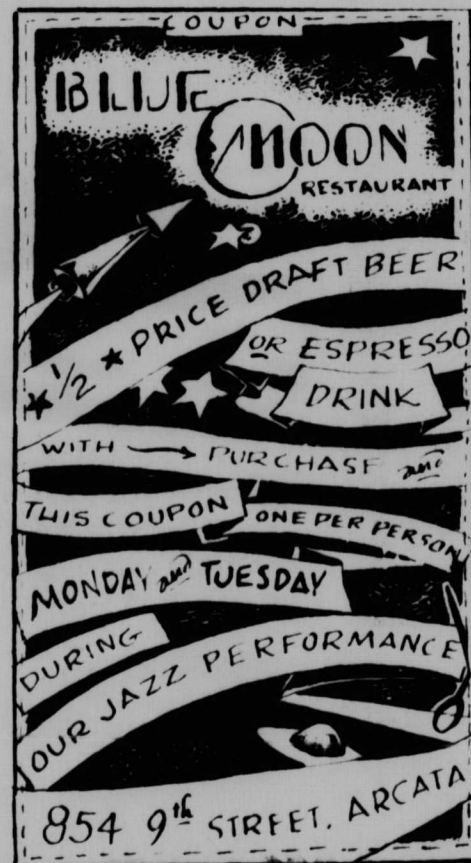 COUPON
BLUE
MOON
RESTAURANT
★ 1/2 ★ PRICE DRAFT BEER
OR ESPRESSO
DRINK
WITH → PURCHASE and
THIS COUPON ONE PER PERSON
MONDAY and TUESDAY
DURING
OUR JAZZ PERFORMANCE
854 9th STREET, ARCATA